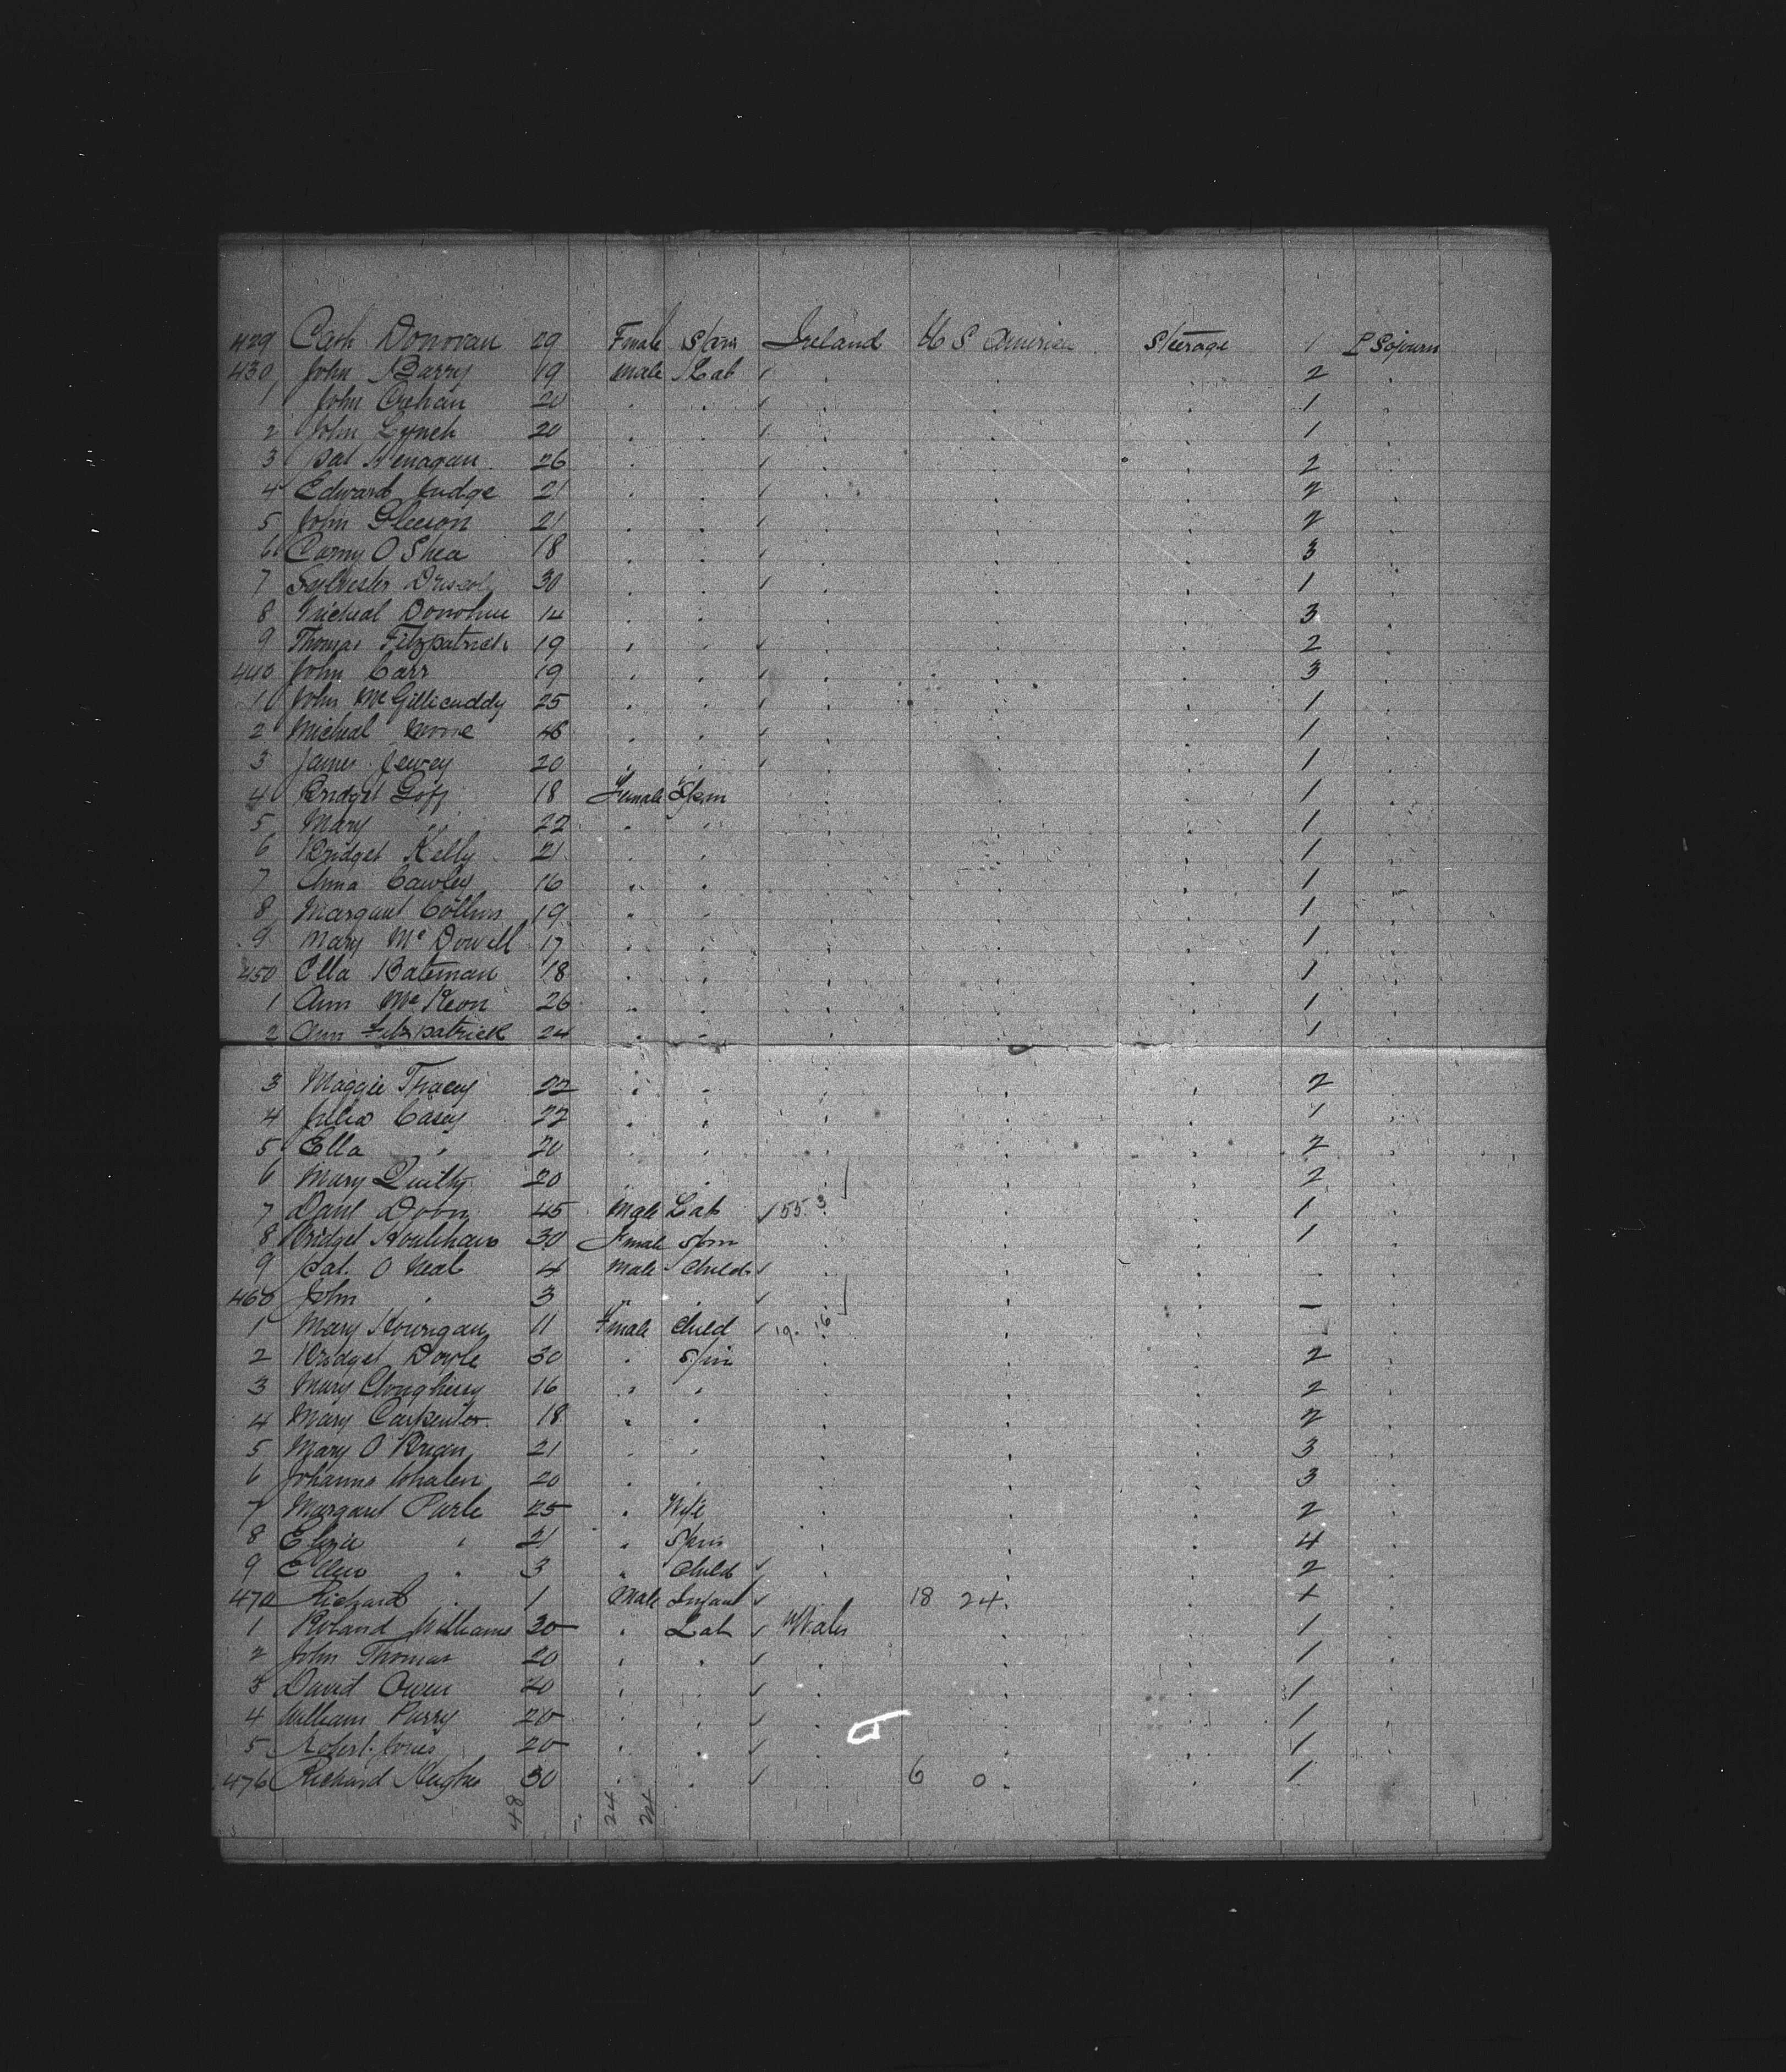 429 Cath Donovan 29 Female Spin Ireland U S America Steerage 1 P Sojourn
430 John Barry 19 Male Lab ✓ . . . 2 .
1 John Crehan 20 . . ✓ . . . 1 .
2 John Lynch 20 . . ✓ . . . 1 .
3 Pat Henagan 26 . . ✓ . . . 2 .
4 Edward Judge 21 . . ✓ . . . 2 .
5 John Gleeson 21 . . ✓ . . . 2 .
6 Corny O Shea 18 . . ✓ . . . 3 .
7 Sylvester Driscol 30 . . ✓ . . . 1 .
8 Micheal Donohue 14 . . . . . 3 .
9 Thomas Fitzpatrick 19 . . ✓ . . . 2 .
440 John Carr 19 . . ✓ . . . 3 .
1 John McGillicuddy 25 . . ✓ . . . 1 .
2 Micheal Moore 48 . . ✓ . . . 1 .
3 James 20 . . ✓ . . . 1 .
4 Bridget Goff 18 Female Spin . . . 1 .
5 Mary " 22 . . . . . 1 .
6 Bridget Kelly 21 . . . . . 1 .
7 Anna Cawley 16 . . . . . 1 .
8 Margaret Collins 19 . . . . . 1 .
9 Mary McDowell 17 . . . . . 1 .
450 Ella Bateman 18 . . . . . 1 .
1 Ann McKeon 26 . . . . . 1 .
2 Ann Fitzpatrick 24 . . . . . 1 .
3 Maggie Tracey 22 . . . . . 2 .
4 Julia Casey 22 . . . . . 1 .
5 Ella " 20 . . . . . 2 .
6 Mary Quilty 20 . . . . . 2 .
7 Danl 45 Male Lab ✓ 55. 3 . . 1 .
8 Bridget Houlihan 30 Female Spin . . . 1 .
9 Pat. O Neal 4 Male Child ✓ . . . - .
460 John . 3 " . ✓ . . . - .
1 Mary Hourigan 11 Female Child ✓ 19. 16 . . .
2 Bridget Doyle 30 . Spin . . . 2 .
3 Mary Clougherry 16 . . . . . 2 .
4 Mary Carpenter 18 . . . . . 2 .
5 Mary O Brian 21 . . . . . 3 .
6 Johanna Whalen 20 . . . . . 3 .
7 Margaret Purle 25 . Wife . . . 2 .
8 Elizie . 21 . Spin . . . 4 .
9 Ellen . 3 . Child ✓ . . . 2 .
470 Richard . 1 Male Infant ✓ 18 24. . + .
1 Roland Williams 20 . Lab ✓ Wales . . 1 .
2 John Thomas 20 . . ✓ . . . 1 .
3 David Owen 20 . . ✓ . . . 1 .
4 William Parry 20 . . ✓ . . . 1 .
5 Robert Jones 20 . . ✓ . . . 1 .
476 Richard Hughes 30 . . ✓ . 6 0. . 1 .
48 24 24